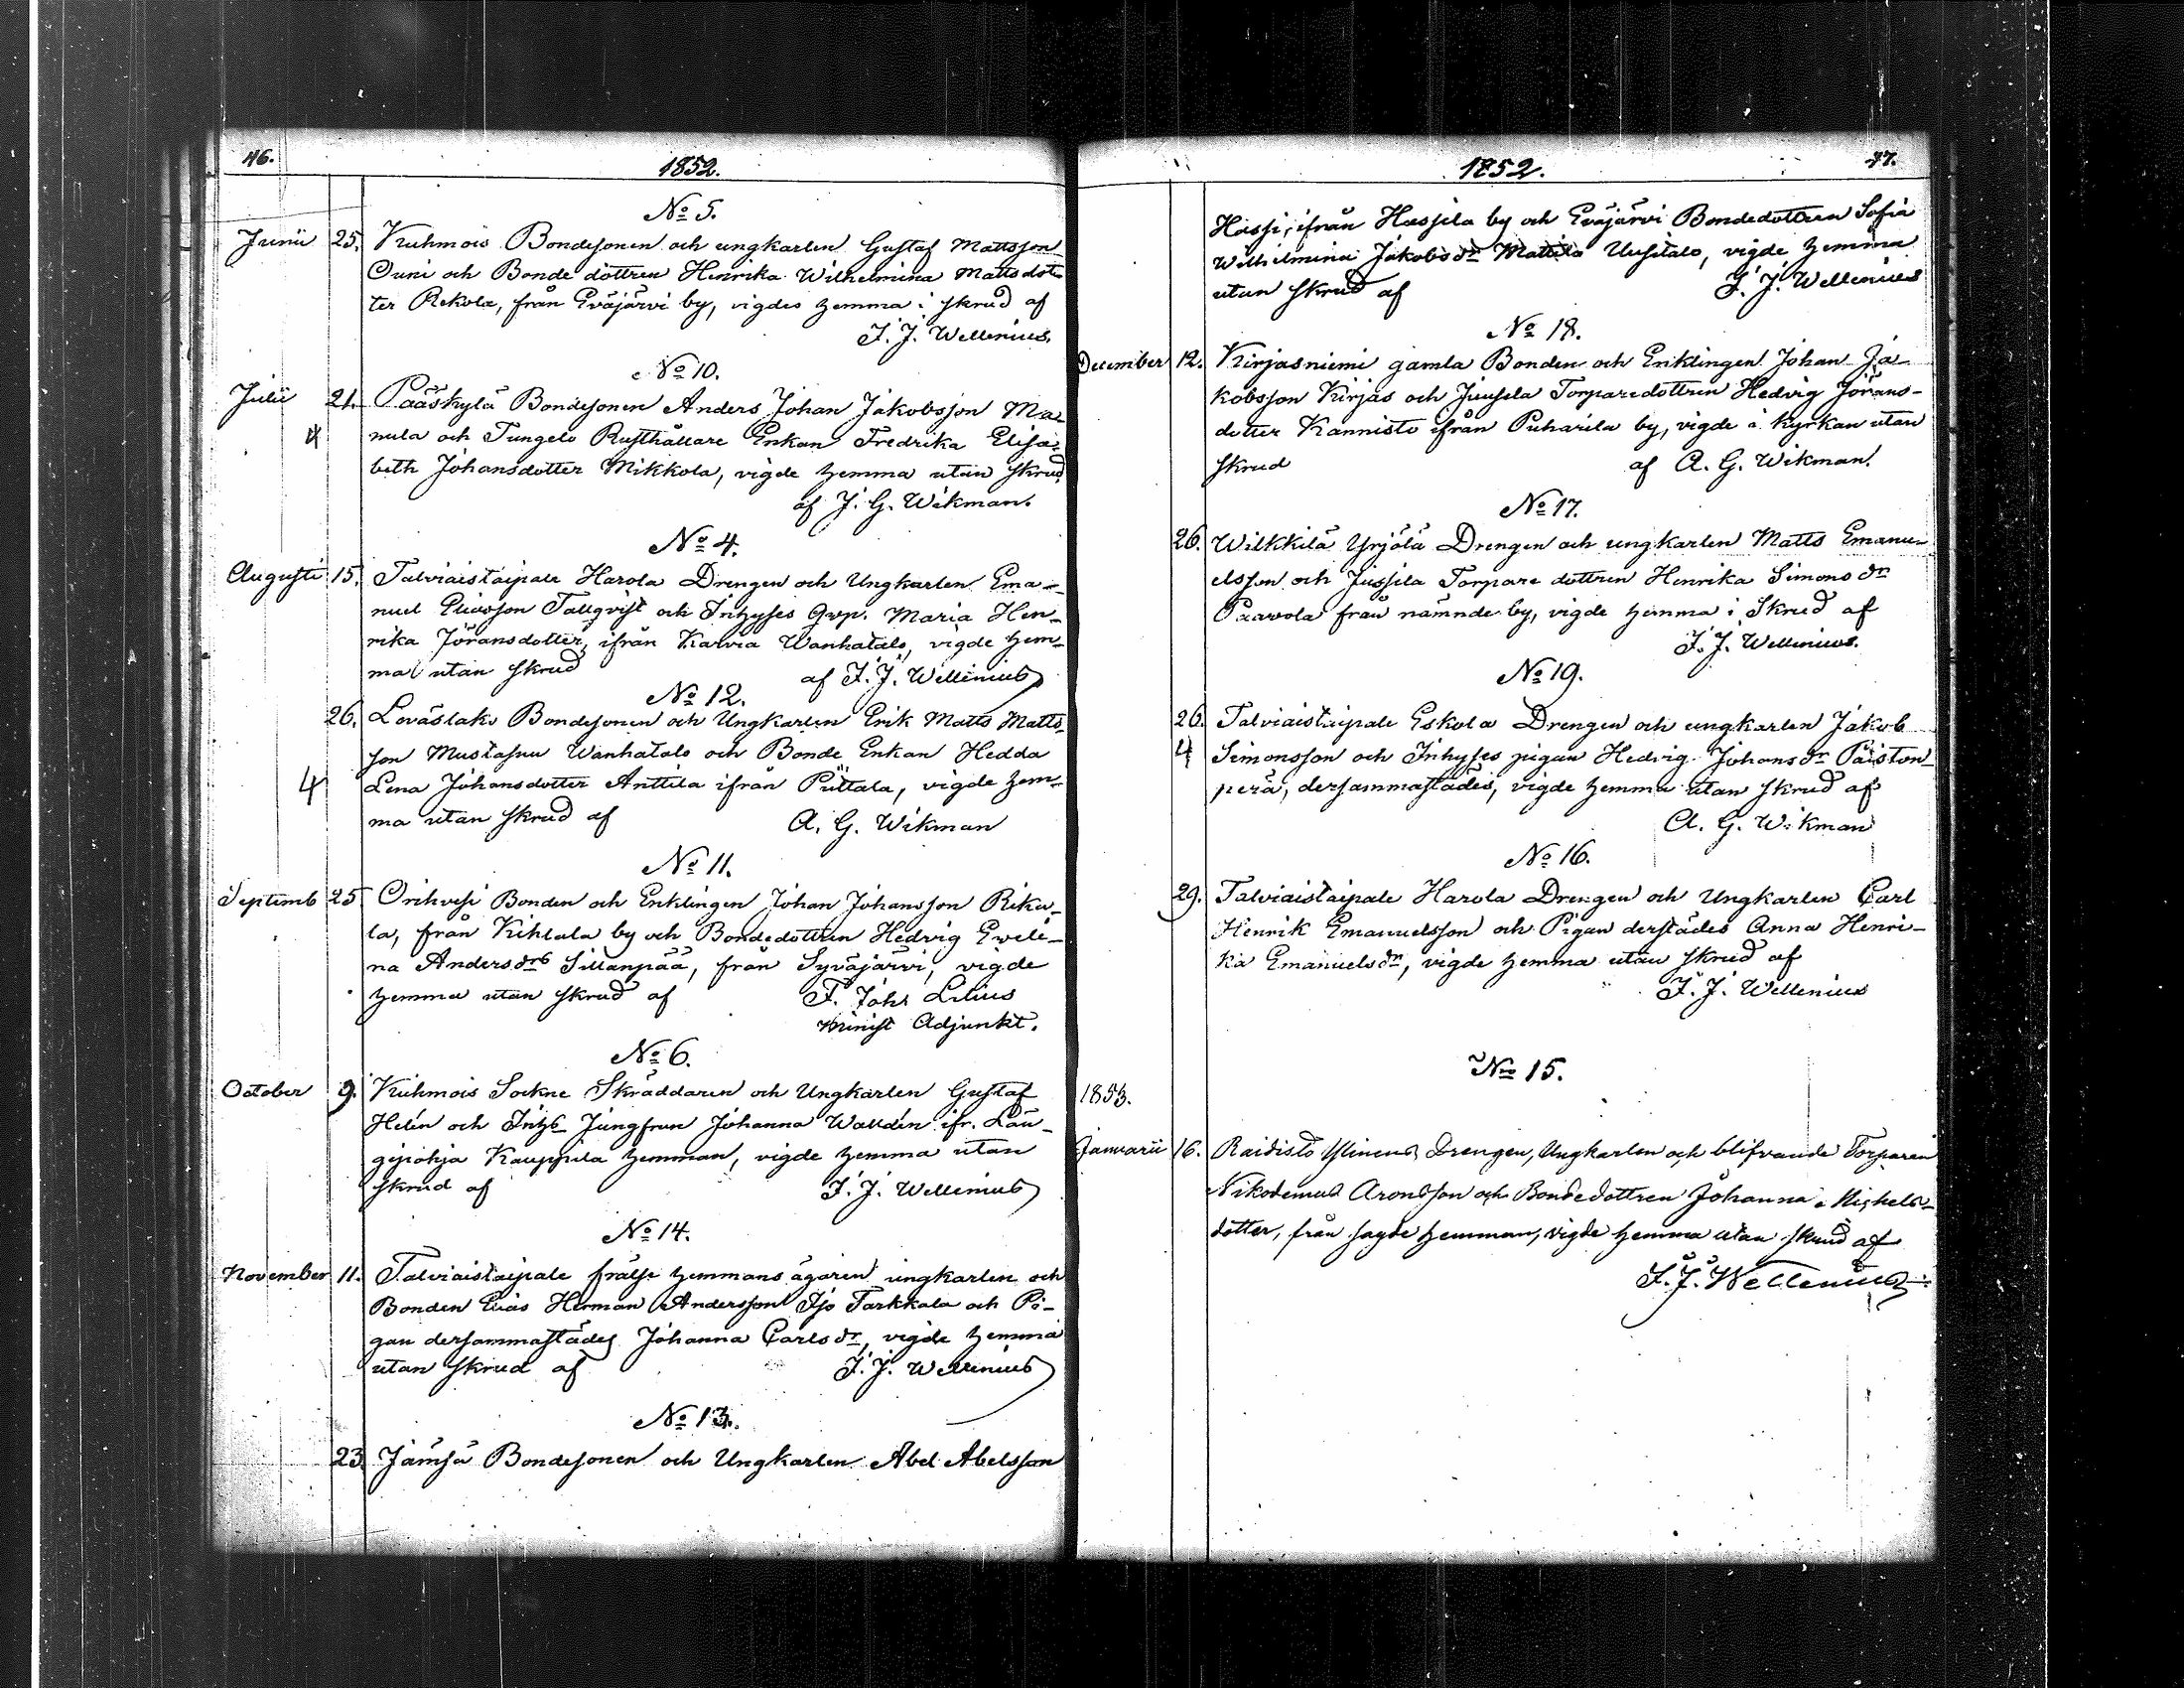 46.
1852.
No 5.
Junii 25. Kuhmois Bondesonen och ungkarlen Gustaf Mattsson
Ouni och Bonde dottren Henrika Wilhelmina Mattsdot-
ter Rekola, från Eväjärvi by, vigdes hemma i skrud af
F. J. Wellenius.
No 10.
Julii 21. Pääskylä Bondesonen Anders Johan Jakobsson Ma-
4 nula och Tungelo Rusthållare Enkan Fredrika Elisa-
beth Johansdotter Mikkola, vigde hemma utan skrud
af J. G. Wikman.
No 4.
Augusti 15. Talviaistaipale Harola Drengen och Ungkarlen Ema-
nuel Eliasson Tallqvist och Inhyses Qvp. Maria Hen-
rika Jöransdotter, ifrån Karvia Wanhatalo, vigde hem-
ma utan skrud af F. J. Wellenius
No 12.
26. Loväslaks Bondesonen och Ungkarlen Erik Matts Matts-
son Mustasuu Wanhatalo och Bonde Enkan Hedda
4 Lena Johansdotter Anttila ifrån Pittala, vigde hem-
ma utan skrud af A. G. Wikman
No 11.
Septemb 25 Orihvesi Bonden och Enklingen Johan Johansson Riku-
la, från Kihlala by och Bondedottren Hedvig Eveli-
na Andersdrs Sillanpää, från Syväjärvi, vigde
hemma utan skrud af F. Joh. Lilius
minist Adjunkt.
No 6.
October 9. Kuhmois Sockne Skräddaren och Ungkarlen Gustaf
Helin och Inhs Jungfrun Johanna Walldén ifr. Län-
gipohja Kauppila hemman, vigde hemma utan
skrud af F. J. Wellenius
No 14.
November 11. Talviaistaipale frälse hemmans ägaren ungkarlen och
Bonden Elias Herman Andersson Iso Tarkkala och Pi-
gan dersammastädes Johanna Carlsdr, vigde hemma
utan skrud af F. J. Wellenius
No 13.
23. Jämsä Bondesonen och Ungkarlen Abel Abelsson
1852.
47.
Hassi, ifrån Hassila by och Eväjärvi Bondedottren Sofia
Wilhelmina Jakobsdr Mattila Uusitalo, vigde hemma
utan skrud af F. J. Wellenius
No 18.
December 12. Kirjasniemi gamla Bonden och Enklingen Johan Ja-
kobsson Kirjas och Juusela Torparedottren Hedvig Jörans-
dotter Kannisto ifrån Puharila by, vigde i kyrkan utan
skrud af A. G. Wikman.
No 17.
26. Wilkkilä Yrjölä Drengen och ungkarlen Matts Emanu-
elsson och Jussila Torpare dottren Henrika Simonsdr
Paavola från nämnde by, vigde hemma i Skrud af
F. J. Wellenius.
No 19.
26. Talviaistaipale Eskola Drengen och ungkarlen Jakob
4 Simonsson och Inhyses pigan Hedvig Johansdr Päiston-
perä, dersammastädes, vigde hemma utan skrud af
A. G. Wikman
No 16.
29. Talviaistaipale Harola Drengen och Ungkarlen Carl
Henrik Emanuelsson och Pigan derstädes Anna Henri-
ka Emanuelsdr, vigde hemma utan skrud af
F. J. Wellenius
No 15.
1853.
Januarii 16. Raidisto Ylinens Drengen, Ungkarlen och blifvande Torparen
Nikodemus Aronsson och Bondedottren Johanna Michels-
dotter, från sagde hemman, vigde hemma utan skrud af
F. J. Wellenius